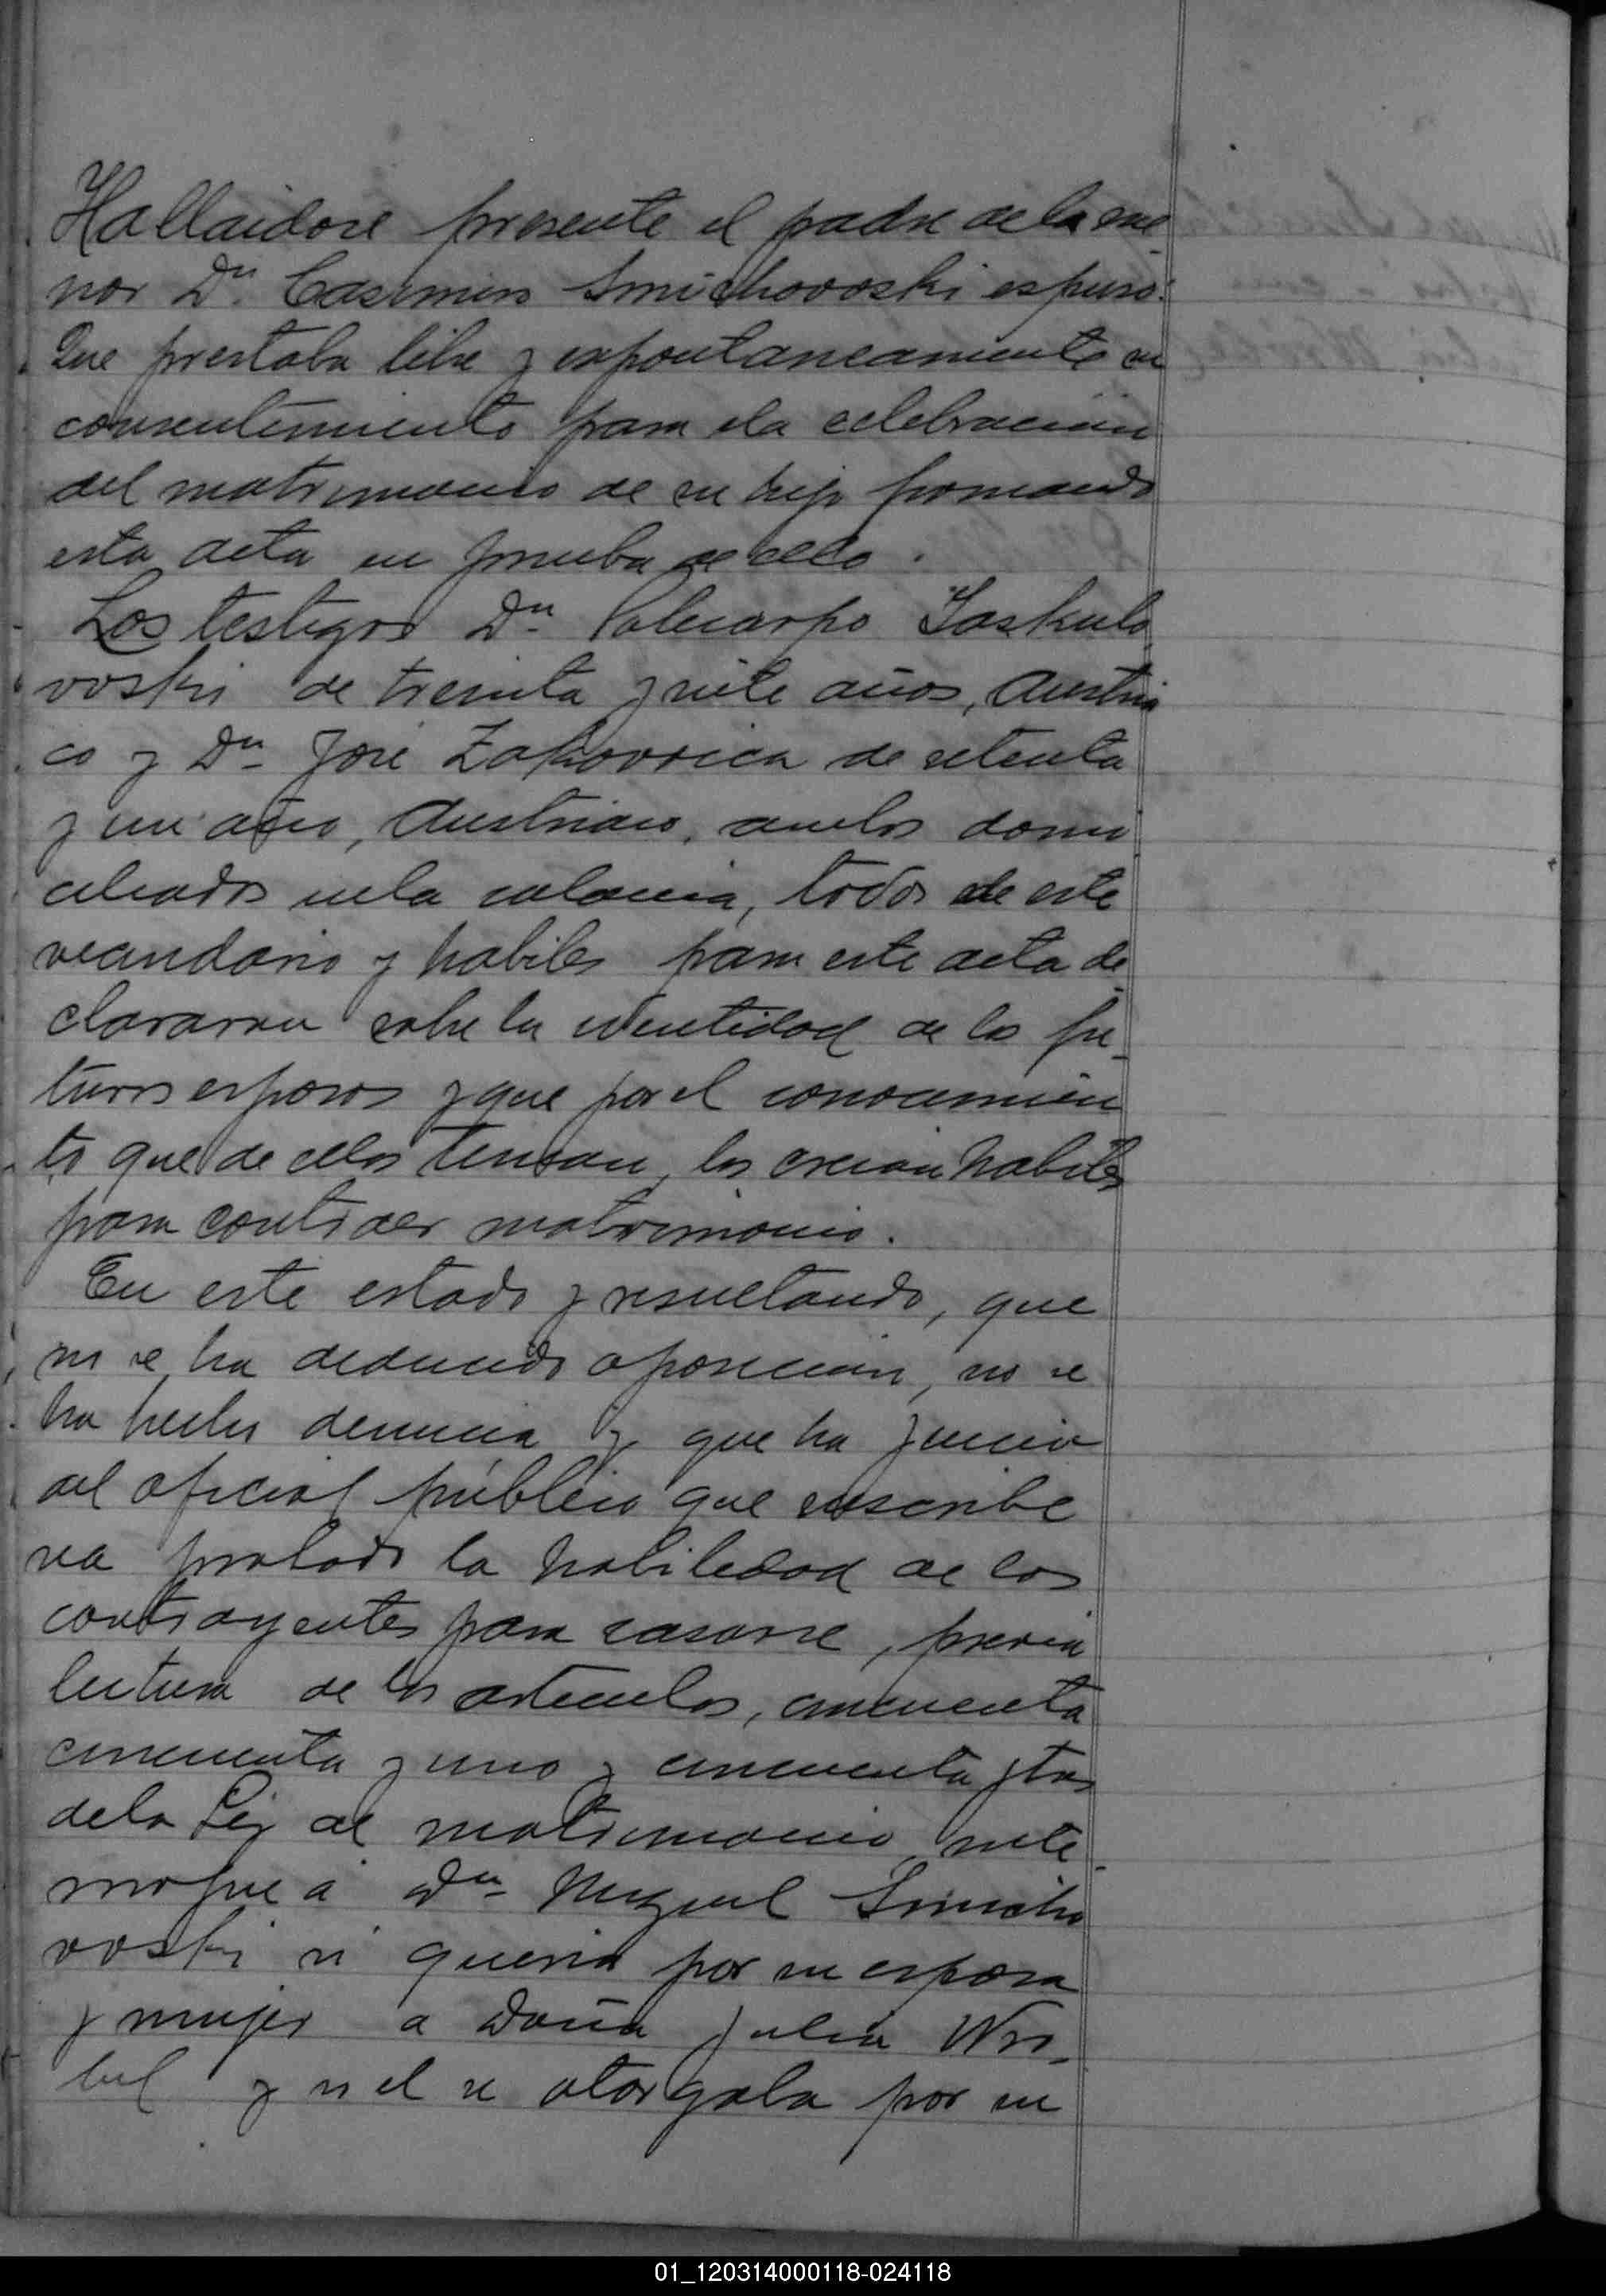 Hallaidose presente el padre de la me
nor Dn. Casimiro Smichovoski espuso:
Que prestaba libre y espontaneamente su
consentimiento para ela celebracion
del matrimonio de su hijo firmando
esta acta en prueba de ello.
Los testigos Dn Policarpo Jaskulo
voski de treinta y siete años, Austria
co y Dn José Zakovsica de setenta
y un años, Austriaco, ambos domi
ciliados en la colonia, todos de este
vecindario y habiles para este acta de
clararon sobre la identidad de los fu_
turos esposos y que por el conocimien
to que de ellos tenian, los creian habiles
para contraer matrimonio.
En este estado y resultando, que
no se ha deducido oposicion, no se
ha hecho denuncia y que ha juicio
del oficial público que suscribe
va probado la habilidad de los
contrayentes para casarse, previa
lectura de los articulos, cincuenta
cincuenta y uno y cincuenta y tres
de la Ley de matrimonio, inte
rrogue á Dn Miguel Smicho
voski si queria por su esposa
y mujer a Doña Julia Wro_
bel y si el se otorgaba por su
01_120314000118-024118